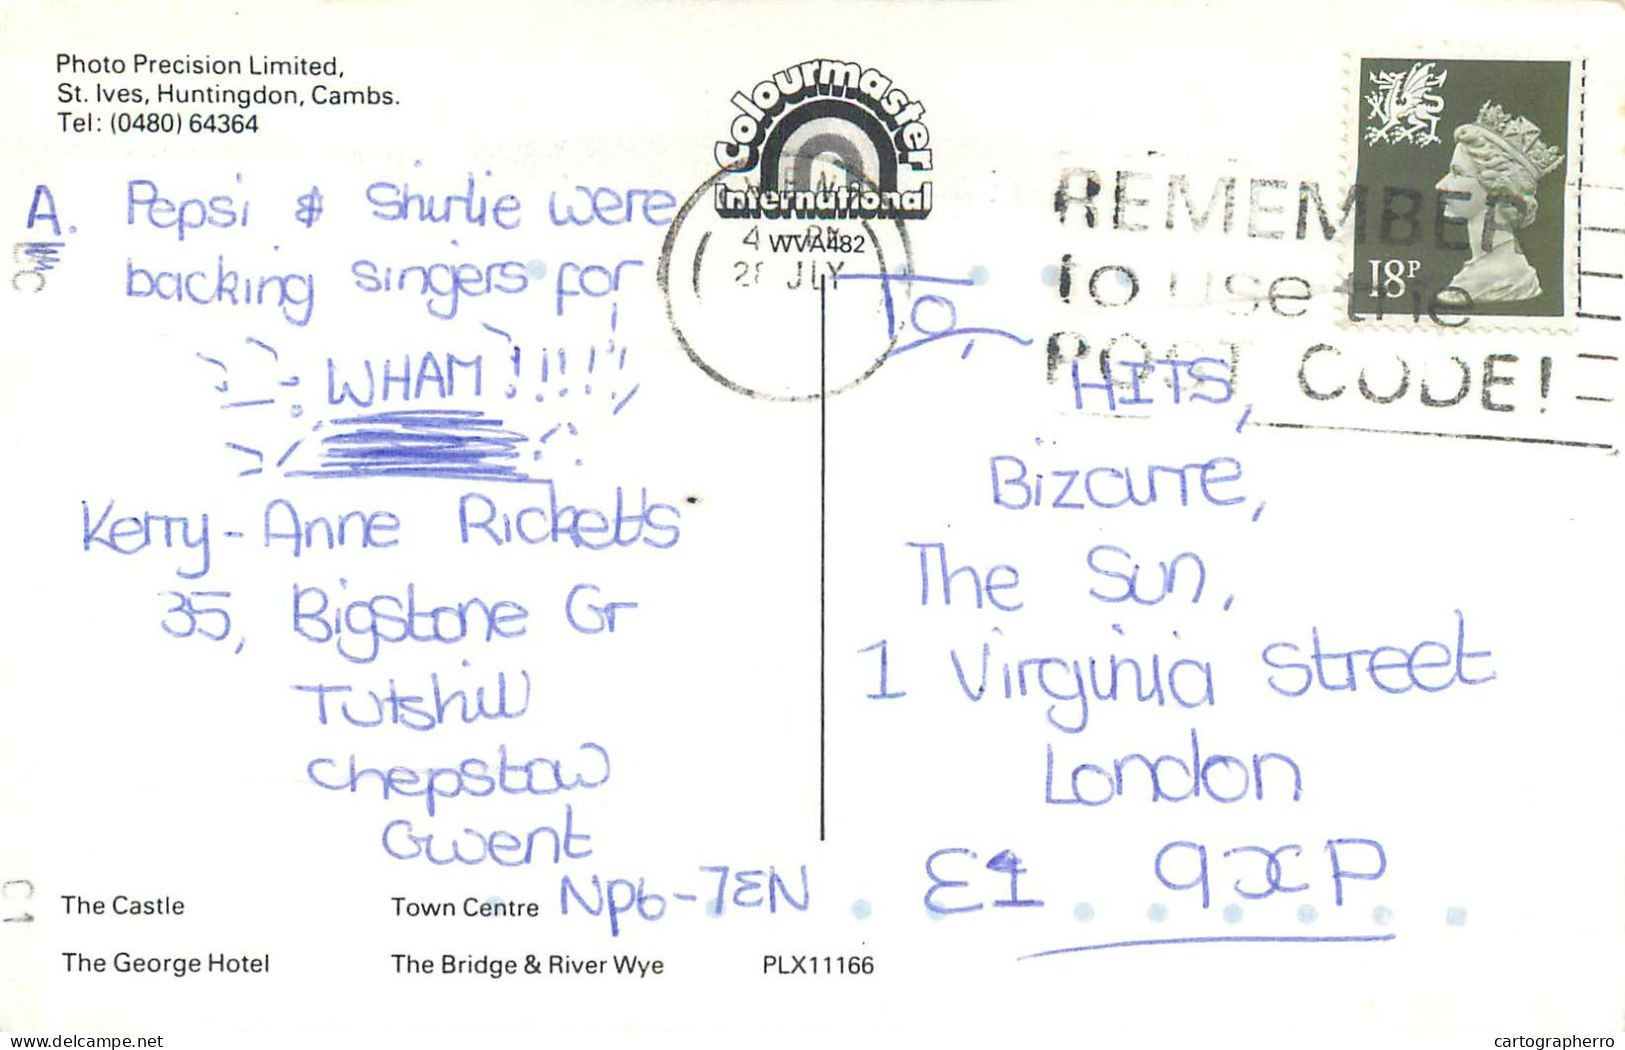 Photo Precision Limited,
St. Ives, Huntingdon, Cambs.
Tel: (0480) 64364
Colourmaster
International
WVA482
4 PM
28 JLY
REMEMBER
to use the
POST CODE!
18P
A. Pepsi & Shirlie were
backing singers for
WHAM!!!!!
Kerry-Anne Ricketts
35, Bigstone Gr
Tutshill
Chepstow
Gwent
NP6-7EN
To,
HITS,
Bizarre,
The Sun,
1 Virginia Street
London
E1 9XP
The Castle
Town Centre
The George Hotel
The Bridge & River Wye
PLX11166
delcampe.net
cartographerro